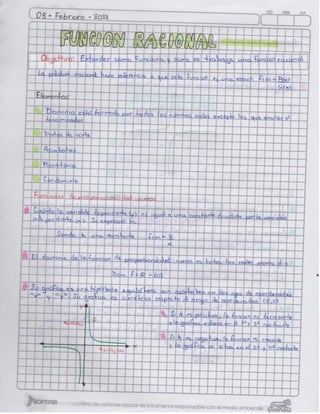 08 • Febrero • 2021
FUNCION RACIONAL
Objetivo: Entender cómo funciona y como se trabaja una función racional
La palabra racional hace referencia a que esta función es una razón F(x) = P(x)
Q(x)
Elementos:
Dominio está formado por todos los números reales excepto los que anulan el
denominador
Puntos de corte
Asíntotas
Monotonía
Cordominio
Funciones de proporcionalidad inversa
Cuando la variable dependiente (y) es igual a una constante dividida por la variable
independiente (x). Su expresión es:
Siendo K una constante f(x) = K
x
El dominio de la función de proporcionalidad inversa es todos los reales menos el 0
Dom f = R - {0}
Su gráfica es una hipérbola equilátera con asíntotas en los ejes de coordenadas
"x" y "y". Su gráfica es simétrica respecto al origen de coordenadas (0,0)
Si K es positivo, la función es decreciente
y la gráfica estará en el 1° y 3° cuadrante
Si K es negativa, la función es creciente
y la gráfica se sitúa en el 2° y 4° cuadrante
Asíntotas
Asíntotas
Norma
La fibra de caña de azúcar es totalmente responsable con el medio ambiente